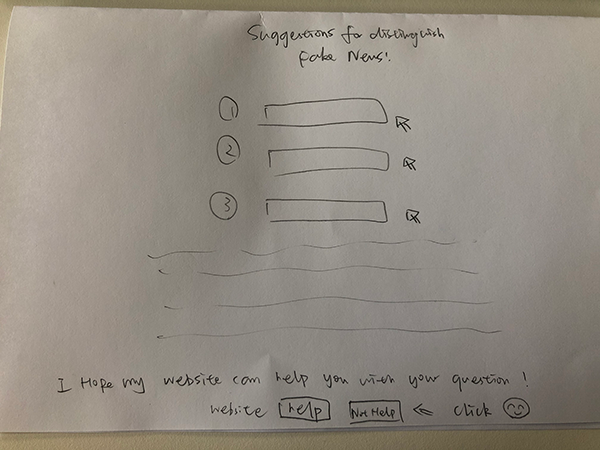 Suggestions for distinguish
fake News!
1
2
3
I Hope my website can help you with your question!
website help Not Help click